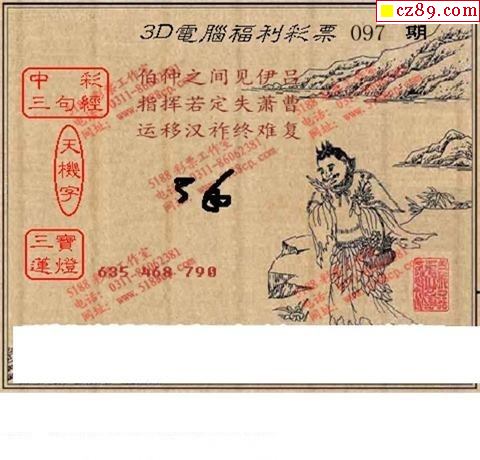 cz89.com
3D電腦福利彩票 097 期
中彩
三句經
伯仲之间见伊吕
指挥若定失萧曹
运移汉祚终难复
天機字
56
三寶
蓮燈
635.468.790
5188 彩票工作室
电话: 0311-86062381
网址: www.5188cp.com